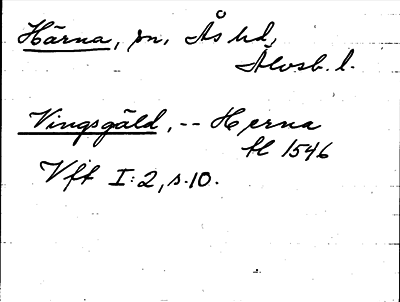 Härna, sn, Ås hd,
Älvsb. l.
Vingsgäld, -- Herna
fl 1546
Vft I:2, s.10.